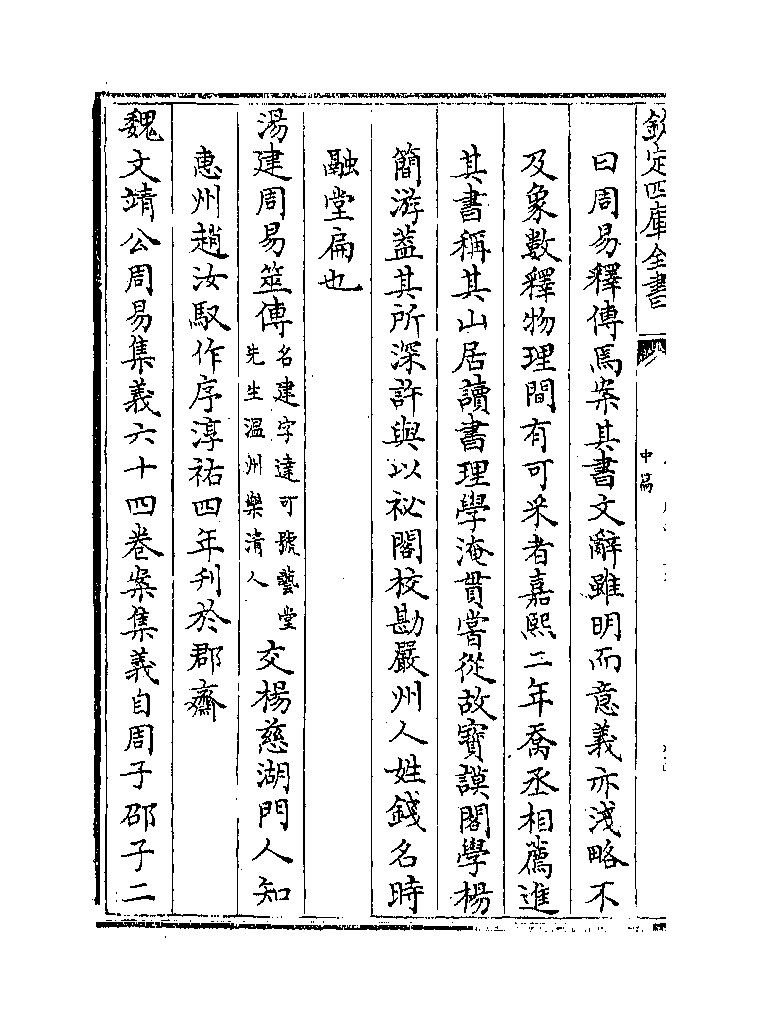 欽定四庫全書
中篇
曰周易釋傳焉案其書文辭雖明而意義亦淺略不
及象數釋物理間有可采者嘉熙二年喬丞相薦進
其書稱其山居讀書理學淹貫嘗從故寶謨閣學楊
簡游蓋其所深許與以祕閣校勘嚴州人姓錢名時
融堂扁也
湯建周易筮傳名建字達可號藝堂先生溫州樂清人交楊慈湖門人知
惠州趙汝馭作序淳祐四年刊於郡齋
魏文靖公周易集義六十四卷案集義自周子邵子二